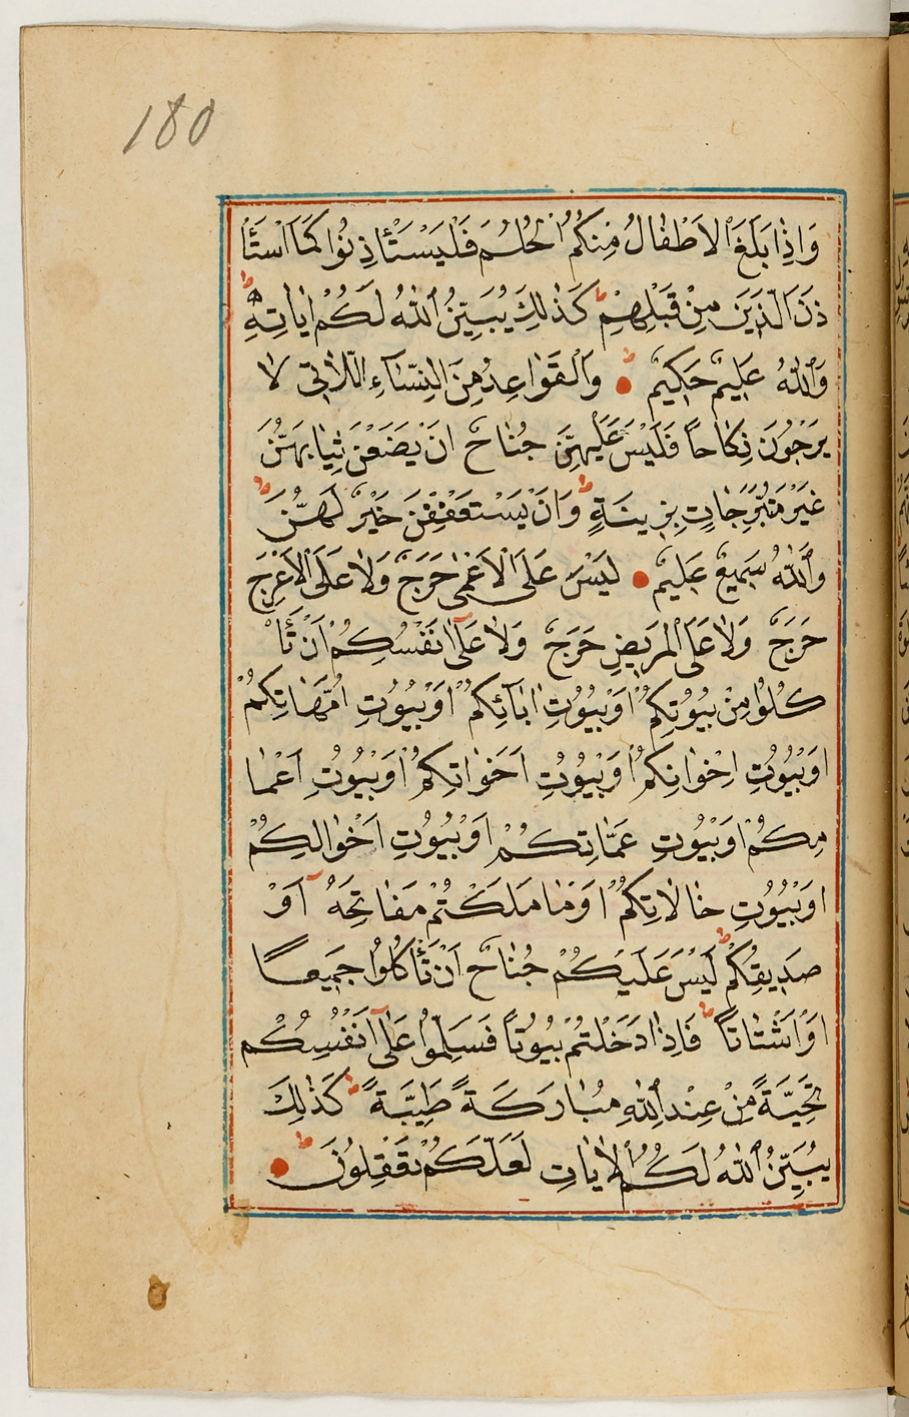 180
وَاِذَا بَلَغَ الْاَطْفَالُ مِنْكُمُ الْحُلُمَ فَلْيَسْتَأْذِنُوا كَمَا اسْتَأْ
ذَنَ الَّذِينَ مِنْ قَبْلِهِمْ ط كَذٰلِكَ يُبَيِّنُ اللّٰهُ لَكُمْ اٰيَاتِهِ ط
وَاللّٰهُ عَلِيمٌ حَكِيمٌ ط وَالْقَوَاعِدُ مِنَ النِّسَآءِ اللَّاتِي لَا
يَرْجُونَ نِكَاحًا فَلَيْسَ عَلَيْهِنَّ جُنَاحٌ اَنْ يَضَعْنَ ثِيَابَهُنَّ
غَيْرَ مُتَبَرِّجَاتٍ بِزِينَةٍ ط وَاَنْ يَسْتَعْفِفْنَ خَيْرٌ لَهُنَّ ط
وَاللّٰهُ سَمِيعٌ عَلِيمٌ لَيْسَ عَلَى الْاَعْمٰى حَرَجٌ وَلَا عَلَى الْاَعْرَجِ
حَرَجٌ وَلَا عَلَى الْمَرِيضِ حَرَجٌ وَلَا عَلٰٓى اَنْفُسِكُمْ اَنْ تَأْ
كُلُوا مِنْ بُيُوتِكُمْ اَوْ بُيُوتِ اٰبَآئِكُمْ اَوْ بُيُوتِ اُمَّهَاتِكُمْ
اَوْ بُيُوتِ اِخْوَانِكُمْ اَوْ بُيُوتِ اَخَوَاتِكُمْ اَوْ بُيُوتِ اَعْمَا
مِكُمْ اَوْ بُيُوتِ عَمَّاتِكُمْ اَوْ بُيُوتِ اَخْوَالِكُمْ
اَوْ بُيُوتِ خَالَاتِكُمْ اَوْ مَا مَلَكْتُمْ مَفَاتِحَهُٓ اَوْ
صَدِيقِكُمْ ط لَيْسَ عَلَيْكُمْ جُنَاحٌ اَنْ تَأْكُلُوا جَمِيعًا
اَوْ اَشْتَاتًا ط فَاِذَا دَخَلْتُمْ بُيُوتًا فَسَلِّمُوا عَلٰٓى اَنْفُسِكُمْ
تَحِيَّةً مِنْ عِنْدِ اللّٰهِ مُبَارَكَةً طَيِّبَةً ط كَذٰلِكَ
يُبَيِّنُ اللّٰهُ لَكُمُ الْاٰيَاتِ لَعَلَّكُمْ تَعْقِلُونَ ط